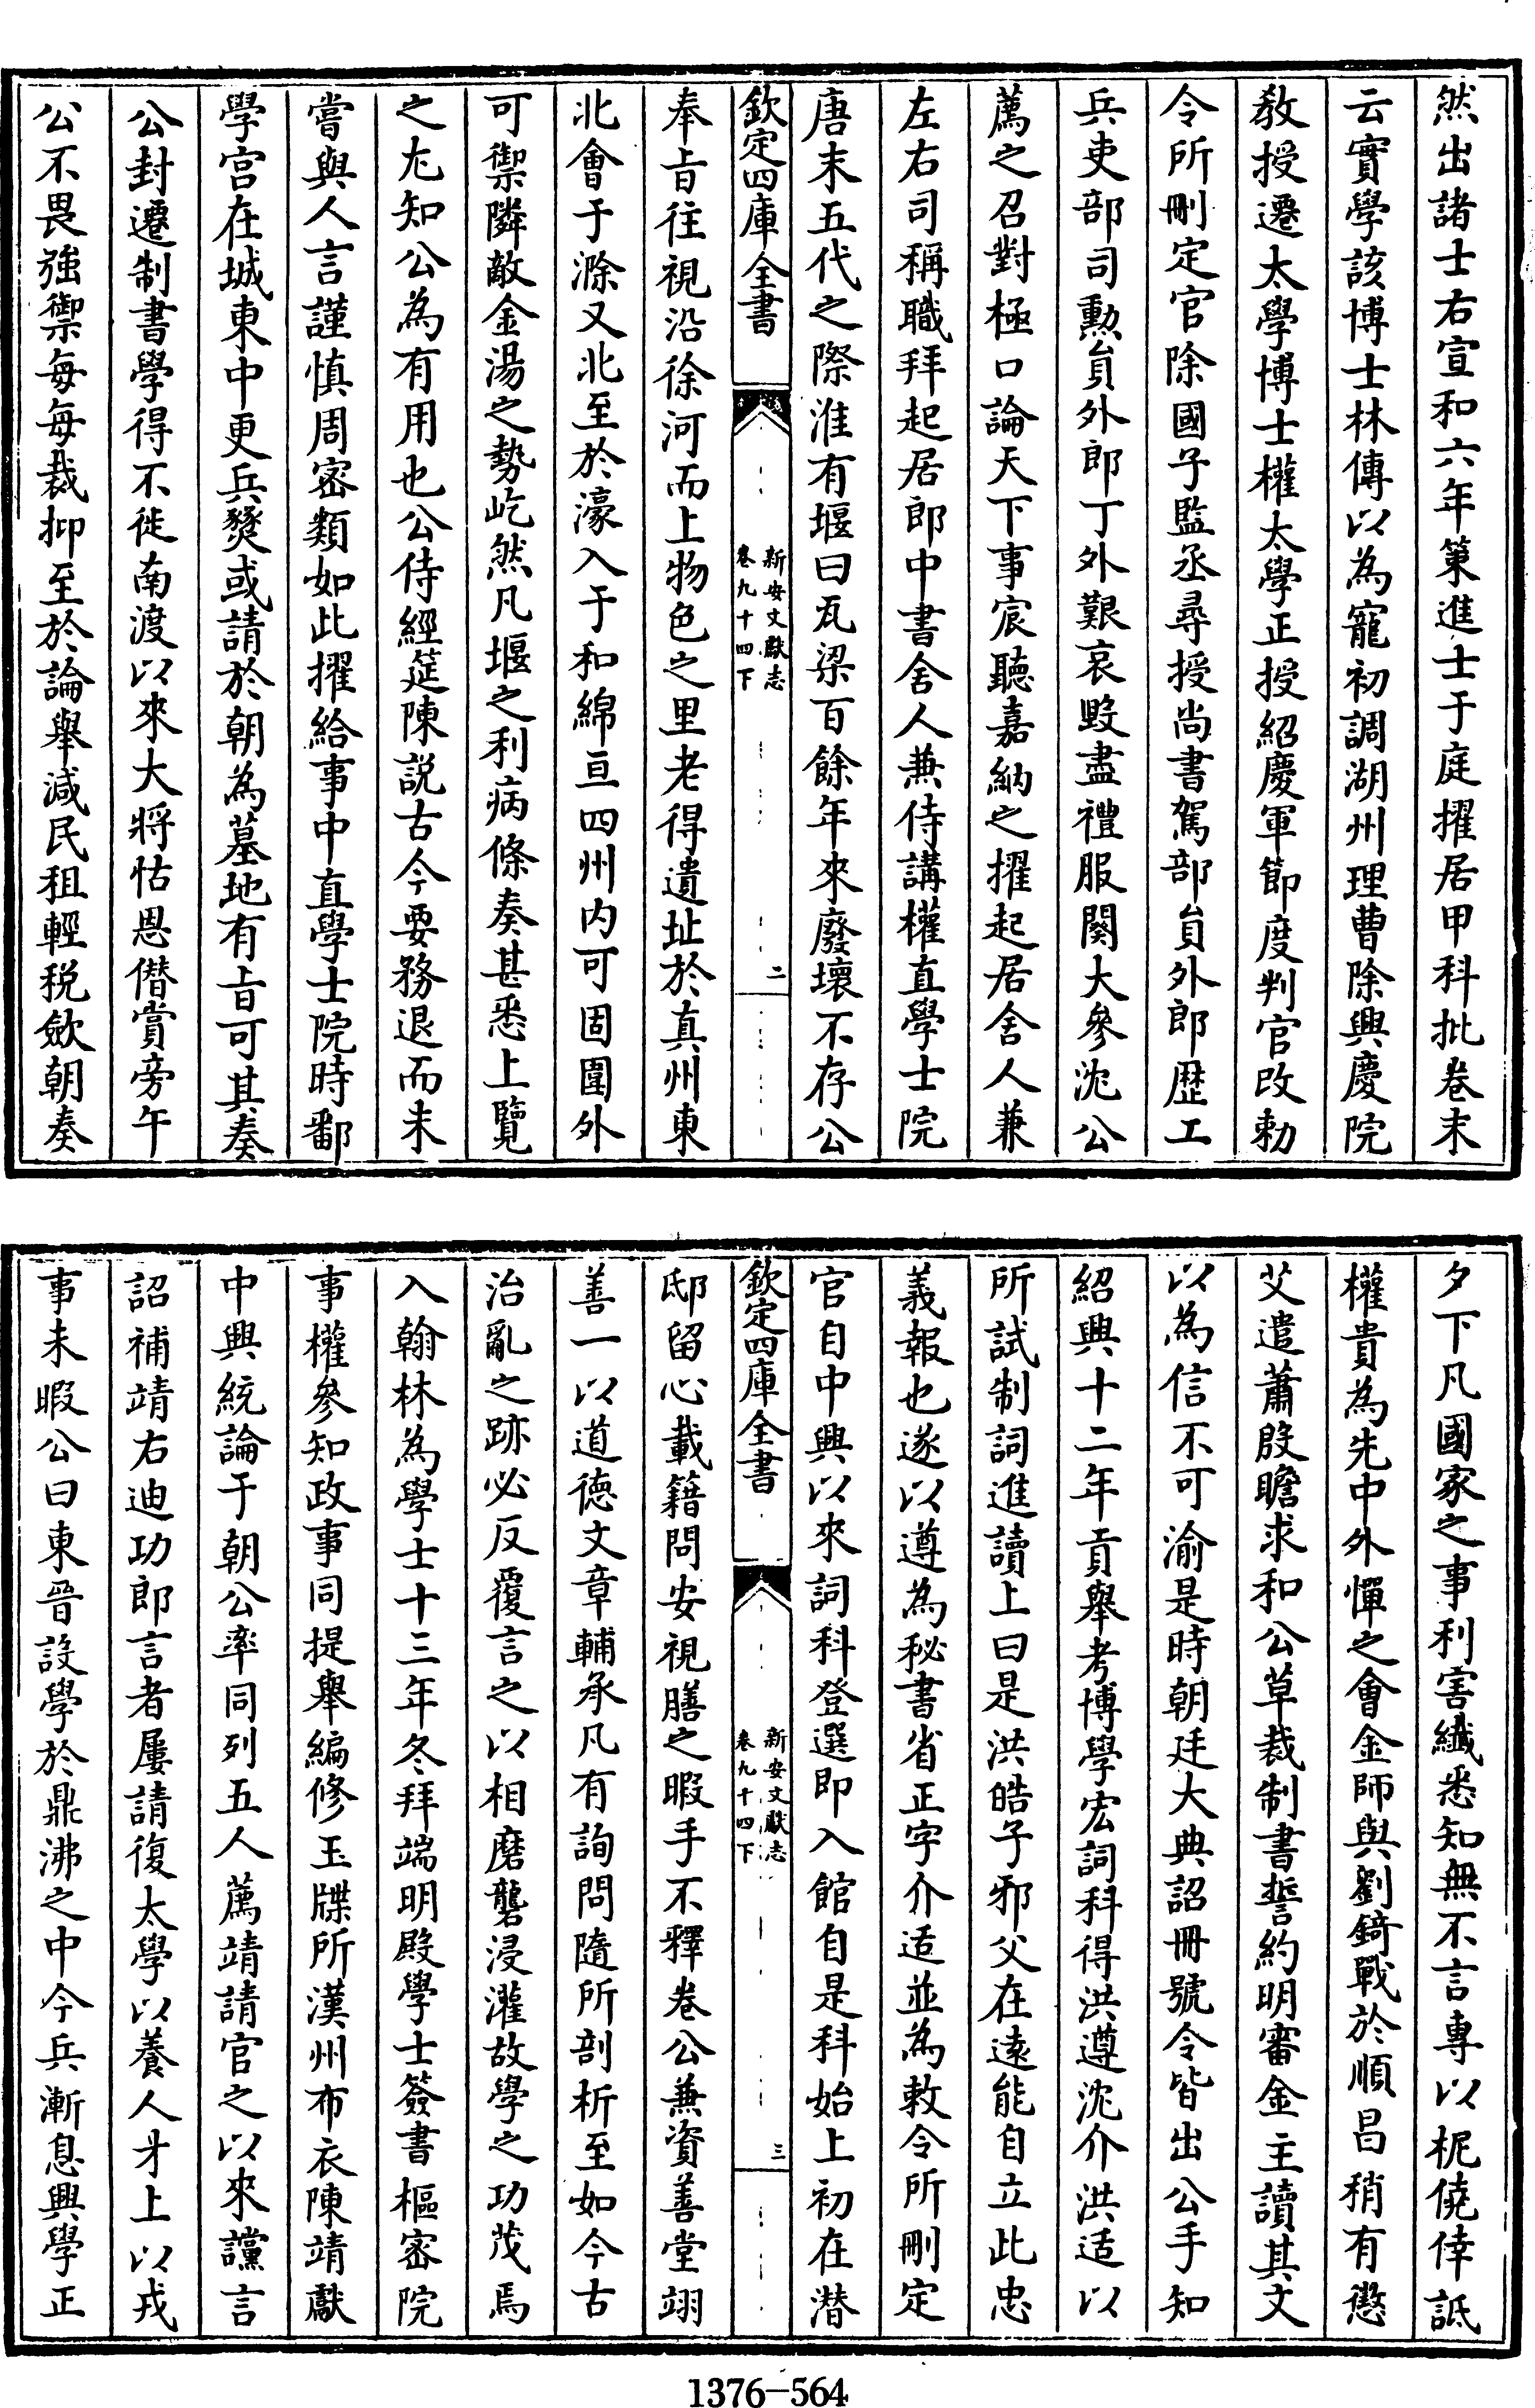 然出諸士右宣和六年第進士于庭擢居甲科批卷末
云實學該博士林傳以為寵初調湖州理曹除興慶院
教授遷太學博士權太學正授紹慶軍節度判官改勅
令所刪定官除國子監丞尋授尚書駕部員外郎歷工
兵吏部司勳員外郎丁外艱哀毀盡禮服闋大參沈公
薦之召對極口論天下事宸聽嘉納之擢起居舍人兼
左右司稱職拜起居郎中書舍人兼侍講權直學士院
唐末五代之際淮有堰曰瓦梁百餘年來廢壞不存公
欽定四庫全書
新安文獻志
卷九十四下
二
奉旨往視沿徐河而上物色之里老得遺址於真州東
北會于滁又北至於濠入于和綿亘四州内可固圉外
可禦隣敵金湯之勢屹然凡堰之利病條奏甚悉上覽
之尤知公為有用也公侍經筵陳説古今要務退而未
嘗與人言謹慎周密類如此擢給事中直學士院時鄱
學宫在城東中更兵燹或請於朝為墓地有旨可其奏
公封還制書學得不徙南渡以來大將怙恩僣賞旁午
公不畏強禦每每裁抑至於論舉減民租輕稅歛朝奏
夕下凡國家之事利害纎悉知無不言專以柅僥倖詆
權貴為先中外憚之會金師與劉錡戰於順昌稍有懲
艾遣蕭殷瞻求和公草裁制書誓約明審金主讀其文
以為信不可渝是時朝廷大典詔冊號令皆出公手知
紹興十二年貢舉考博學宏詞科得洪遵沈介洪适以
所試制詞進讀上曰是洪皓子邪父在遠能自立此忠
義報也遂以遵為秘書省正字介适並為敕令所刪定
官自中興以來詞科登選即入館自是科始上初在潜
欽定四庫全書
新安文獻志
卷九十四下
三
邸留心載籍問安視膳之暇手不釋卷公兼資善堂翊
善一以道徳文章輔承凡有詢問隨所剖析至如今古
治亂之跡必反覆言之以相磨礱浸灌故學之功茂焉
入翰林為學士十三年冬拜端明殿學士簽書樞密院
事權參知政事同提舉編修玉牒所漢州布衣陳靖獻
中興統論于朝公率同列五人薦靖請官之以來讜言
詔補靖右迪功郎言者屢請復太學以養人才上以戎
事未暇公曰東晉設學於鼎沸之中今兵漸息興學正
1376-564